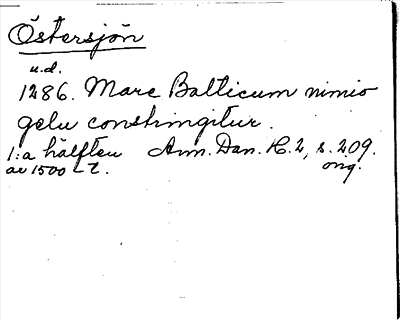 Östersjön
u.d.
1286. Mare Balticum nimio
gelu constringitur.
1:a hälften Ann. Dan. H. 2, s. 209.
av 1500-t. orig.